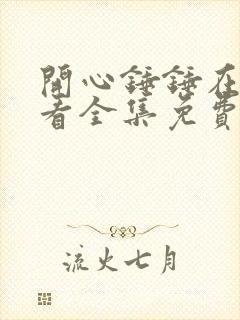 開心錘錘在
看全集免費
流火七月